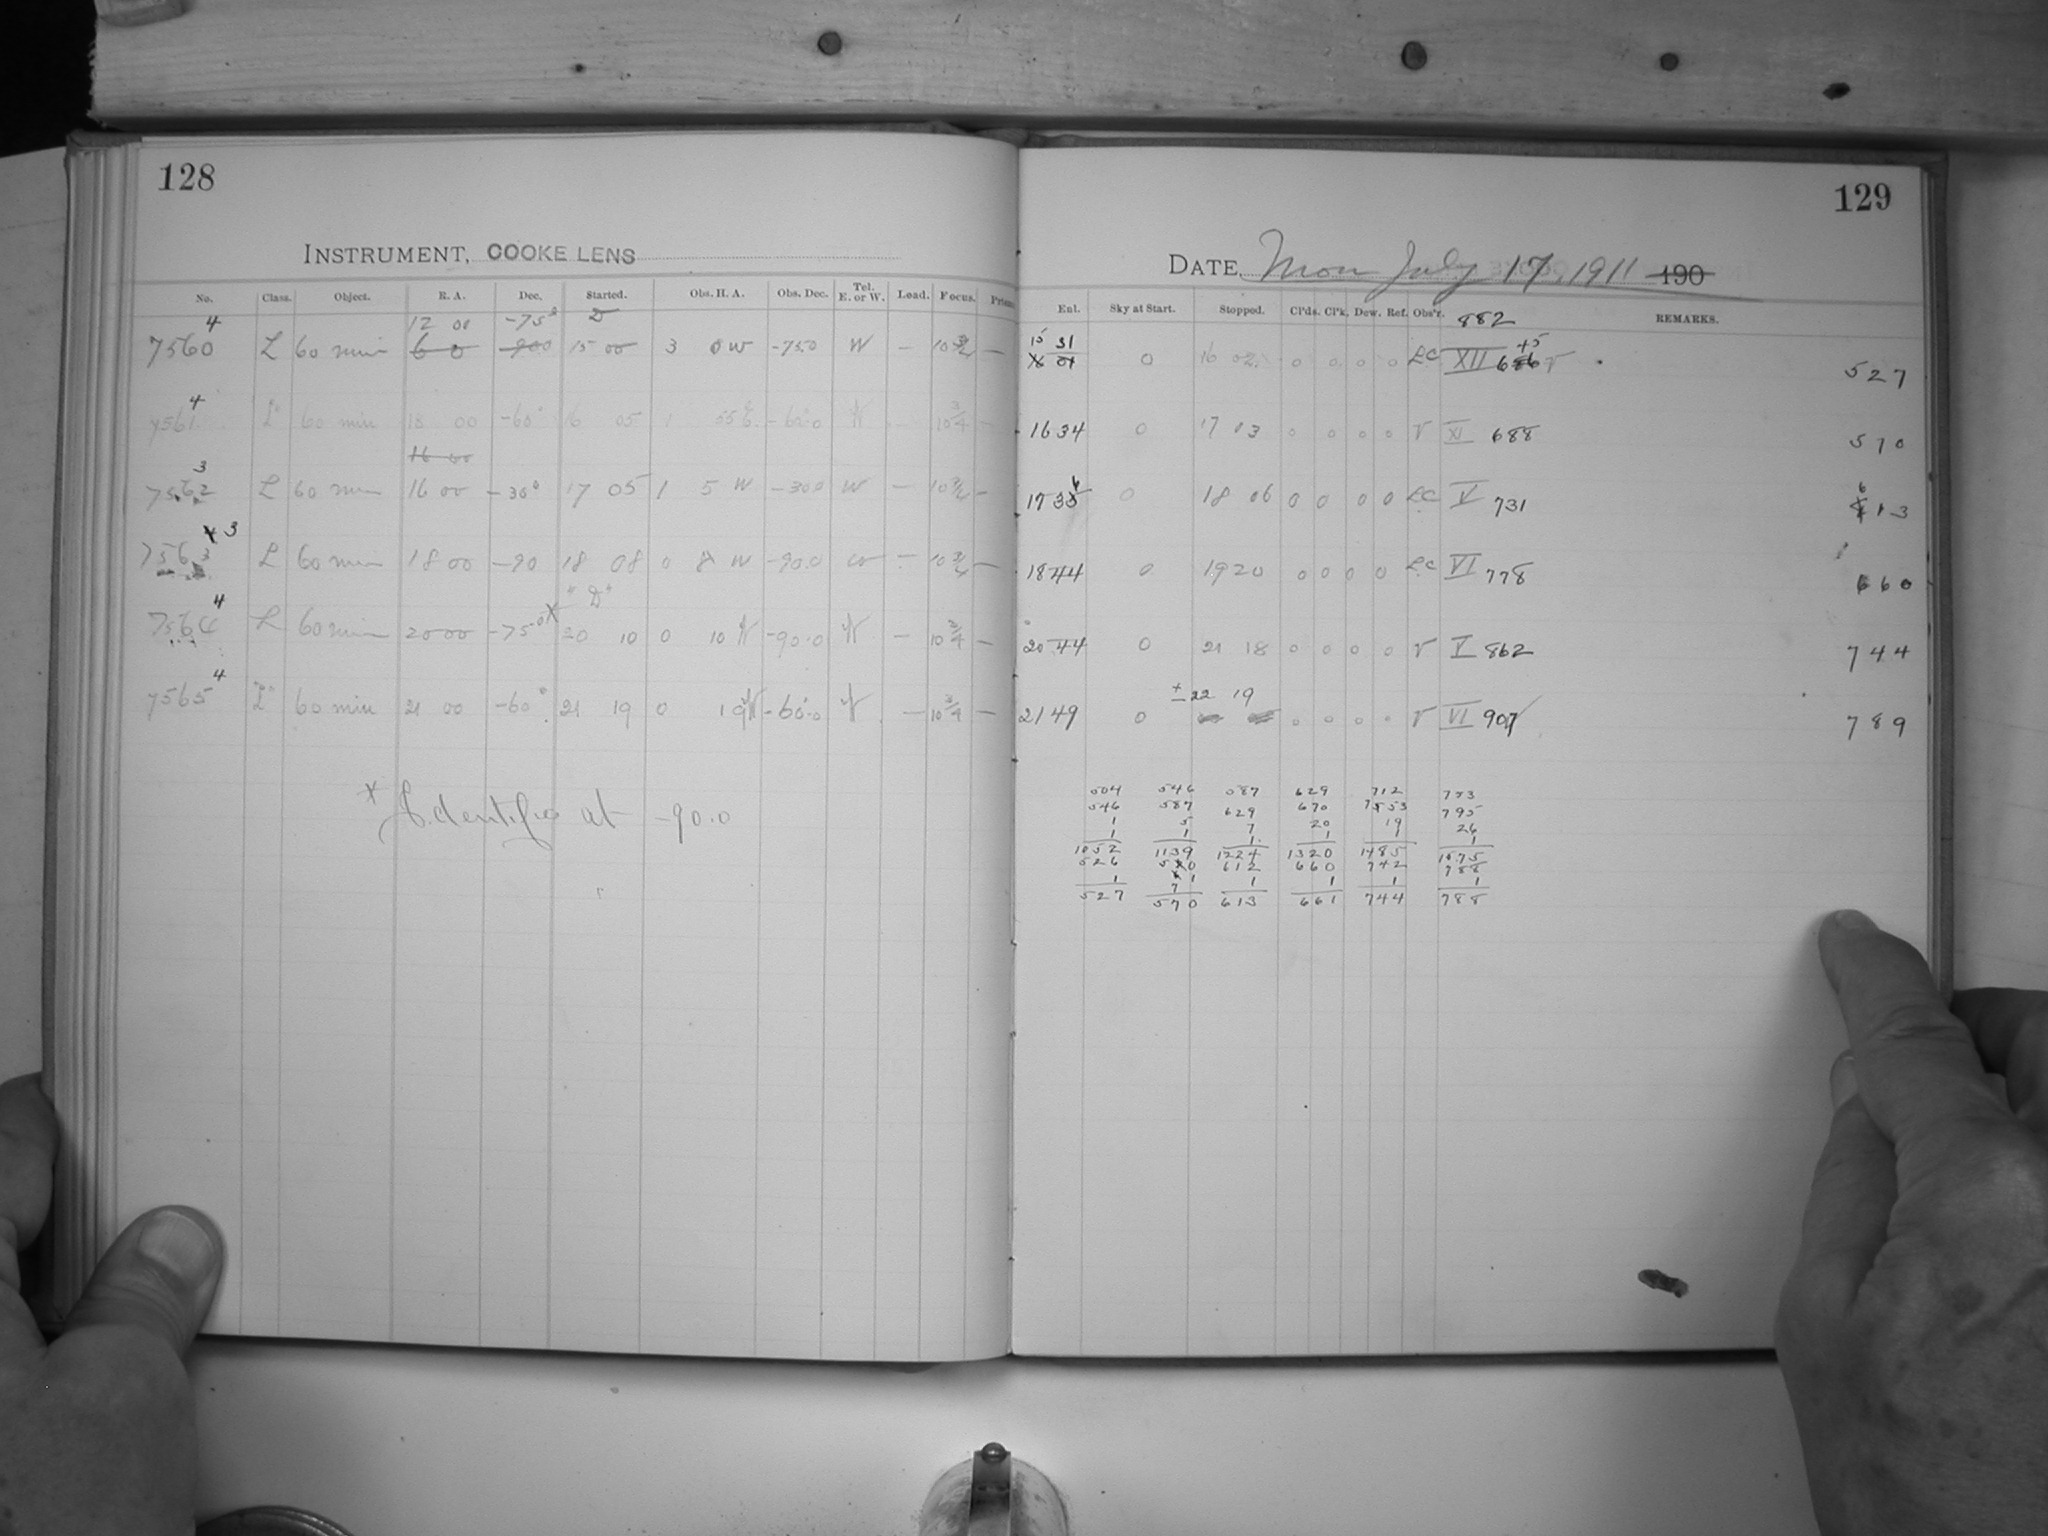 128
INSTRUMENT, COOKE LENS
No. Class. Object. R. A. Dec. Started. Obs. H. A. Obs. Dec. Tel. E. or W. Load. Focus.
12 00 -75°
7560 4 L 60 min 6 0 -900 15 00 3 0 W -75.0 W — 10 3/4 —
7561 4 "L" 60 min 18 00 -60° 16 05 1 55 E -60.0 W — 10 3/4 —
16 00
7562 3 L 60 min 16 00 -30° 17 05 1 5 W -30.0 W — 10 3/4 —
7563 3 L 60 min 18 00 -90 18 08 0 8 W -90.0 W — 10 3/4 —
"D"
7564 4 L 60 min 20 00 -75° x 20 10 0 10 W -90.0 W — 10 3/4 —
7565 4 "L" 60 min 21 00 -60° 21 19 0 19 W -60.0 W — 10 3/4 —
x Identifio at -90.0
129
DATE, Mon July 17, 1911 190
Ent. Sky at Start. Stopped. Cl'ds. Cl'k. Dew. Ref. Obs'r. REMARKS.
882
15 31
16 01 0 16 02 0 0 0 0 LC XII 686 45 527
16 34 0 17 03 0 0 0 0 V XI 688 570
17 35 0 18 06 0 0 0 0 LC V 731 613
18 44 0 19 20 0 0 0 0 LC VI 778 660
20 44 0 21 18 0 0 0 0 V V 862 744
± 22 19
21 49 0 0 0 0 0 V VI 907 789
504 546 587 629 712 753
546 587 629 670 753 795
1 5 7 20 19 26
1 1 1 1 1 1
1052 1139 1224 1320 1485 1575
526 570 612 660 742 788
1 1 1 1 1 1
527 570 613 661 744 788